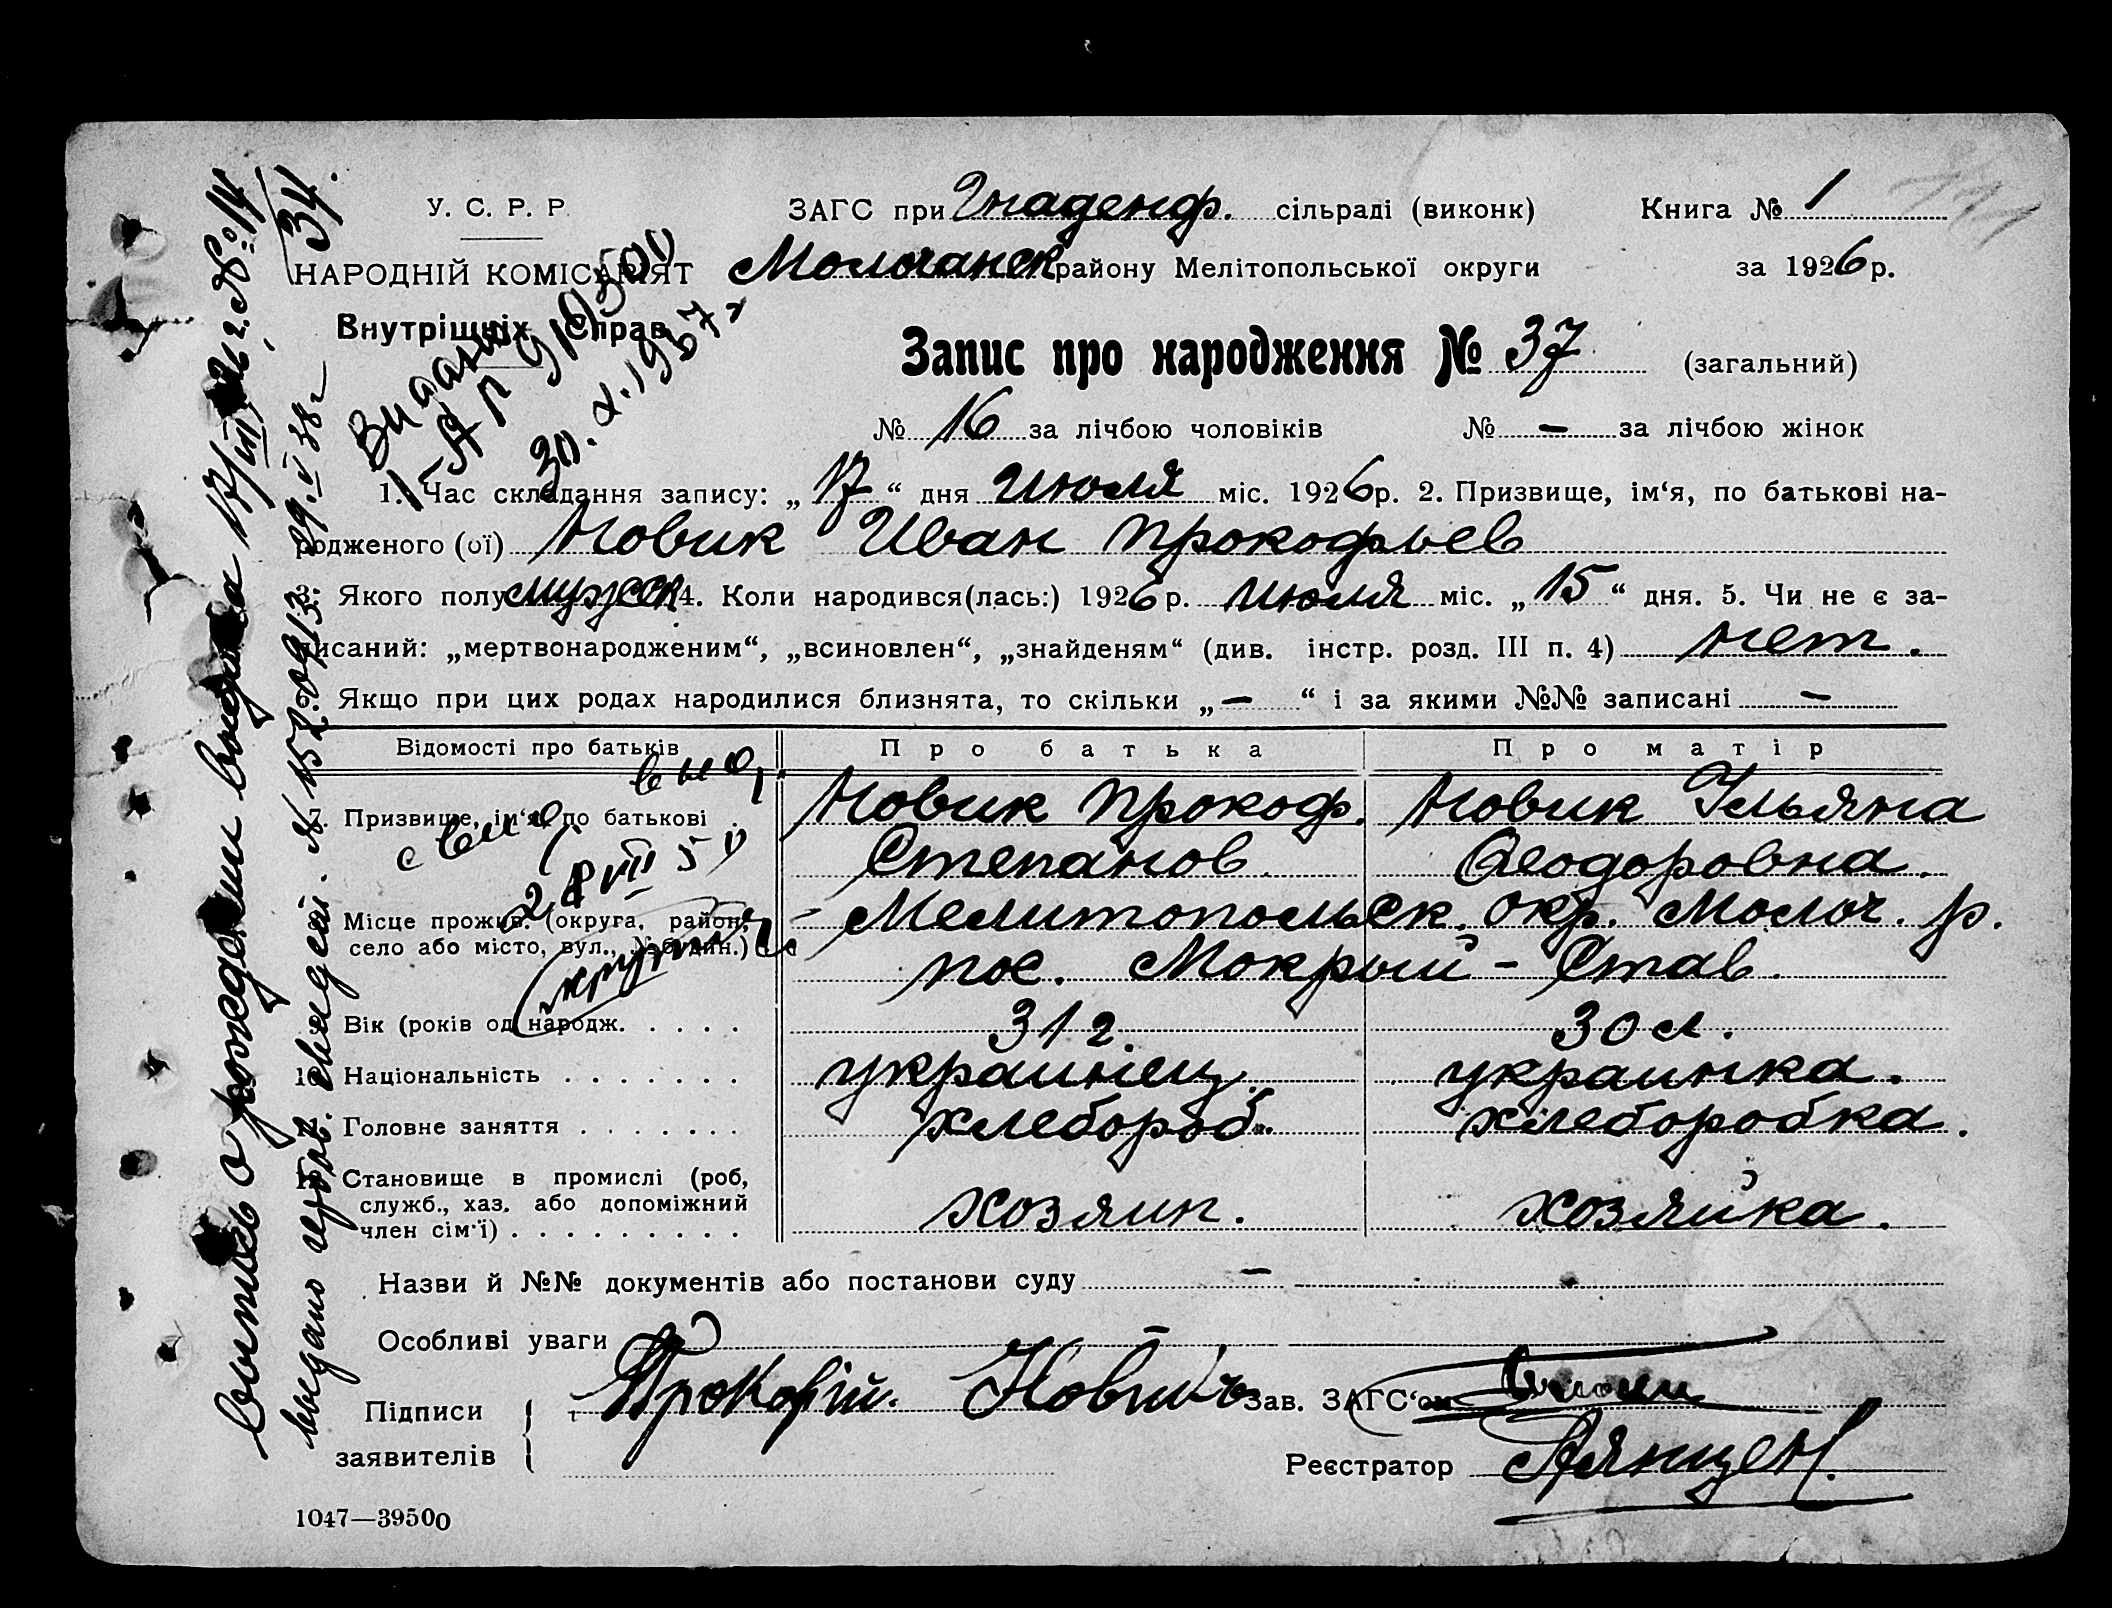 У. С. Р. Р.
НАРОДНІЙ КОМІСАРІЯТ
Внутрішніх Справ
ЗАГС при Гнаденф. сільраді (виконк) Книга № 1
Молочанск району Мелітопольської округи за 1926 р.
Запис про народження № 37 (загальний)
№ 16 за лічбою чоловіків № — за лічбою жінок
1. Час складання запису: „17“ дня Июля міс. 1926 р. 2. Призвище, ім‘я, по батькові на-
родженого (ої) Новик Иван Прокофьев
3. Якого полу мужск 4. Коли народився(лась:) 1926 р. Июля міс. „15“ дня. 5. Чи не є за-
писаний: „мертвонародженим“, „всиновлен“, „знайденям“ (див. інстр. розд. III п. 4) нет.
6. Якщо при цих родах народилися близнята, то скільки „—“ і за якими №№ записані —
Відомості про батьків Про батька Про матір
7. Призвище, ім‘я, по батькові . Новик Прокоф. Новик Ульяна
Степанов. Феодоровна.
Місце прожив. (округа, район, Мелитопольск. окр. Молоч. р.
село або місто, вул., № будин.) пос. Мокрый - Став.
Вік (років од народж. . . . . 31 г. 30 л.
10. Національність . . . . . . . украинец. украинка.
11. Головне заняття . . . . . . . хлебороб. хлеборобка.
12. Становище в промислі (роб,
служб., хаз. або допоміжний хозяин. хозяйка.
член сім‘ї) . . . . . . . . .
Назви й №№ документів або постанови суду —
Особливі уваги —
Підписи заявителів Прокофій. Новикъ Зав. ЗАГС‘ом
Реєстратор
1047—39500
Выпись о рождении выдана 17/VIII 26 г. № 14/34.
выдано свидет. № 29.V 38 г
Видано
1-АР 910500
30. X. 1957 г
28 VII 50